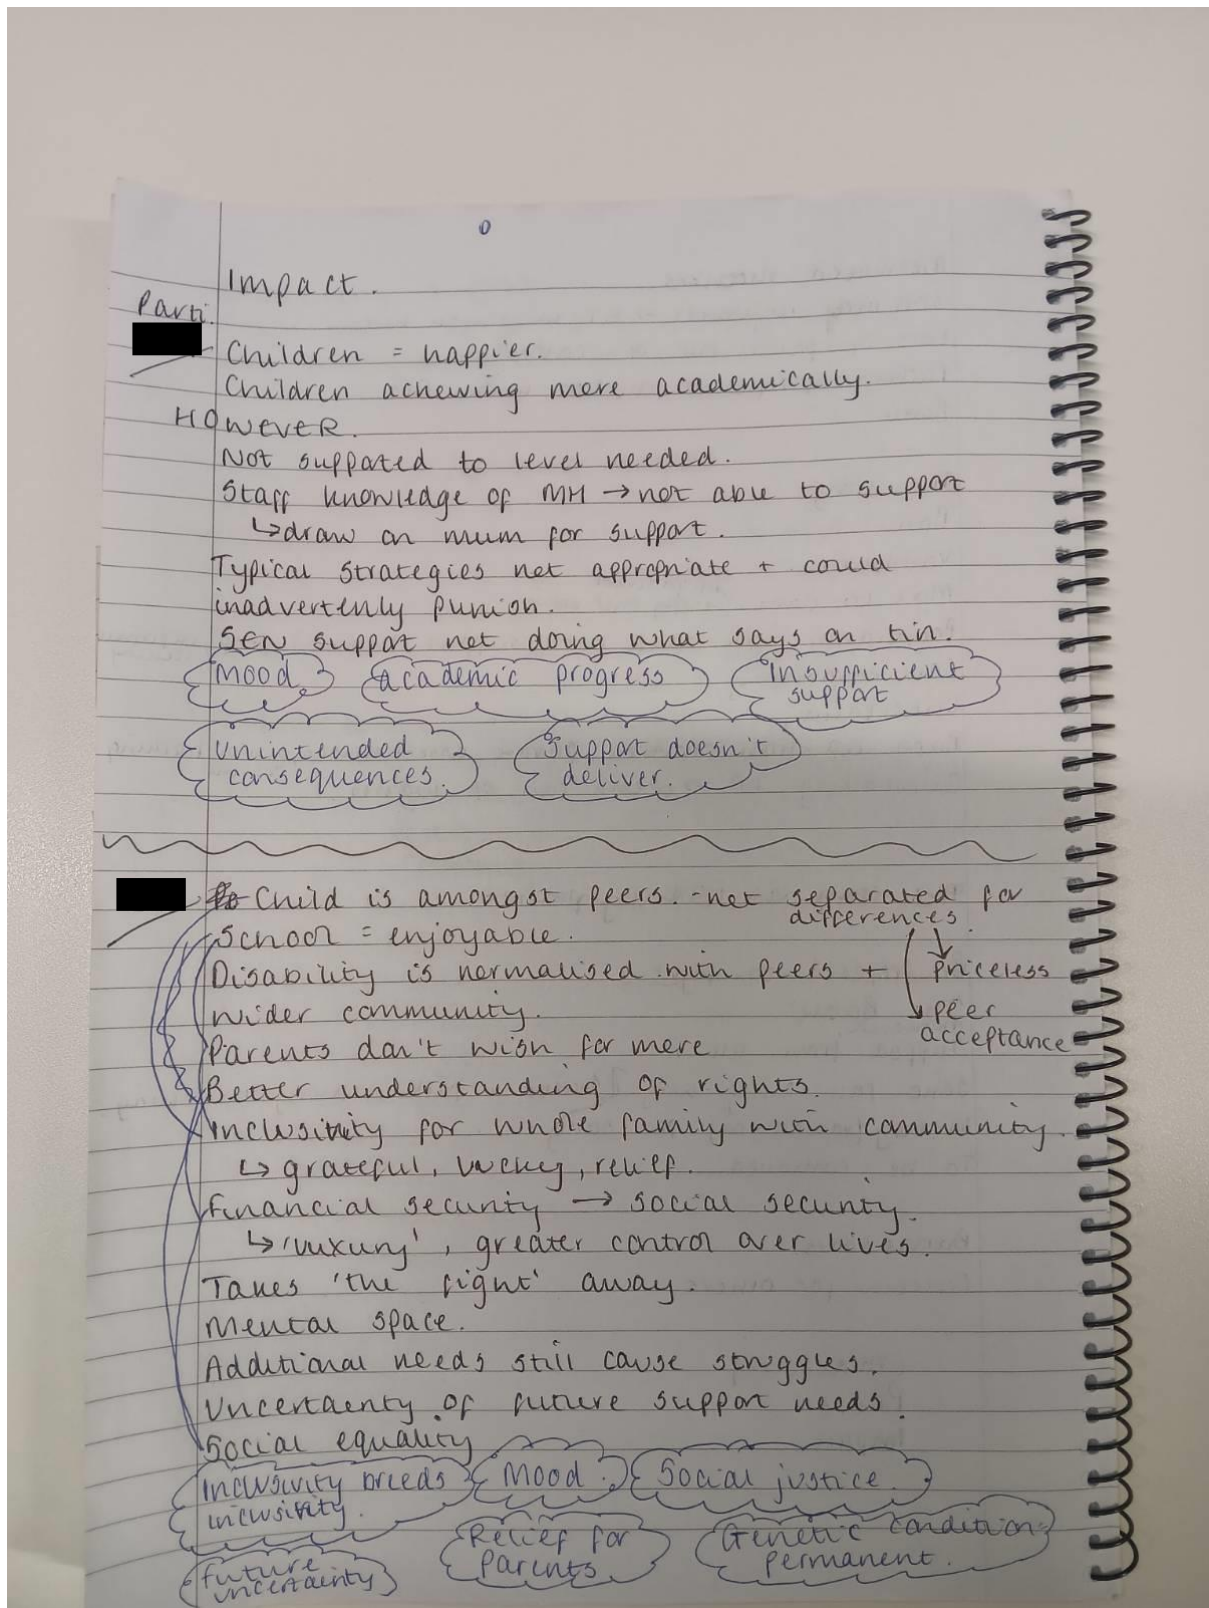 Impact.
Parti.
Children = happier.
Children acheiving more academically.
HOWEVER.
Not supported to level needed.
Staff knowledge of MH → not able to support
↳ draw on mum for support.
Typical strategies not appropriate + could
inadvertenly punish.
SEN support not doing what says on tin.
Mood
academic progress
Insufficient
support
unintended
consequences.
Support doesn't
deliver.
Child is amongst peers. - not separated for
differences.
School = enjoyable.
Disability is normalised with peers +
priceless
wider community.
peer
acceptance
Parents don't wish for more
Better understanding of rights.
Inclusivity for whole family with community.
↳ grateful, lucky, relief.
Financial security → social security.
↳ 'luxury', greater control over lives.
Takes 'the fight' away.
Mental space.
Additional needs still cause struggles.
Uncertainty of future support needs.
Social equality
Inclusivity breeds
inclusivity.
Mood.
Social justice.
Relief for
parents
Genetic condition
permanent.
future
uncertainty